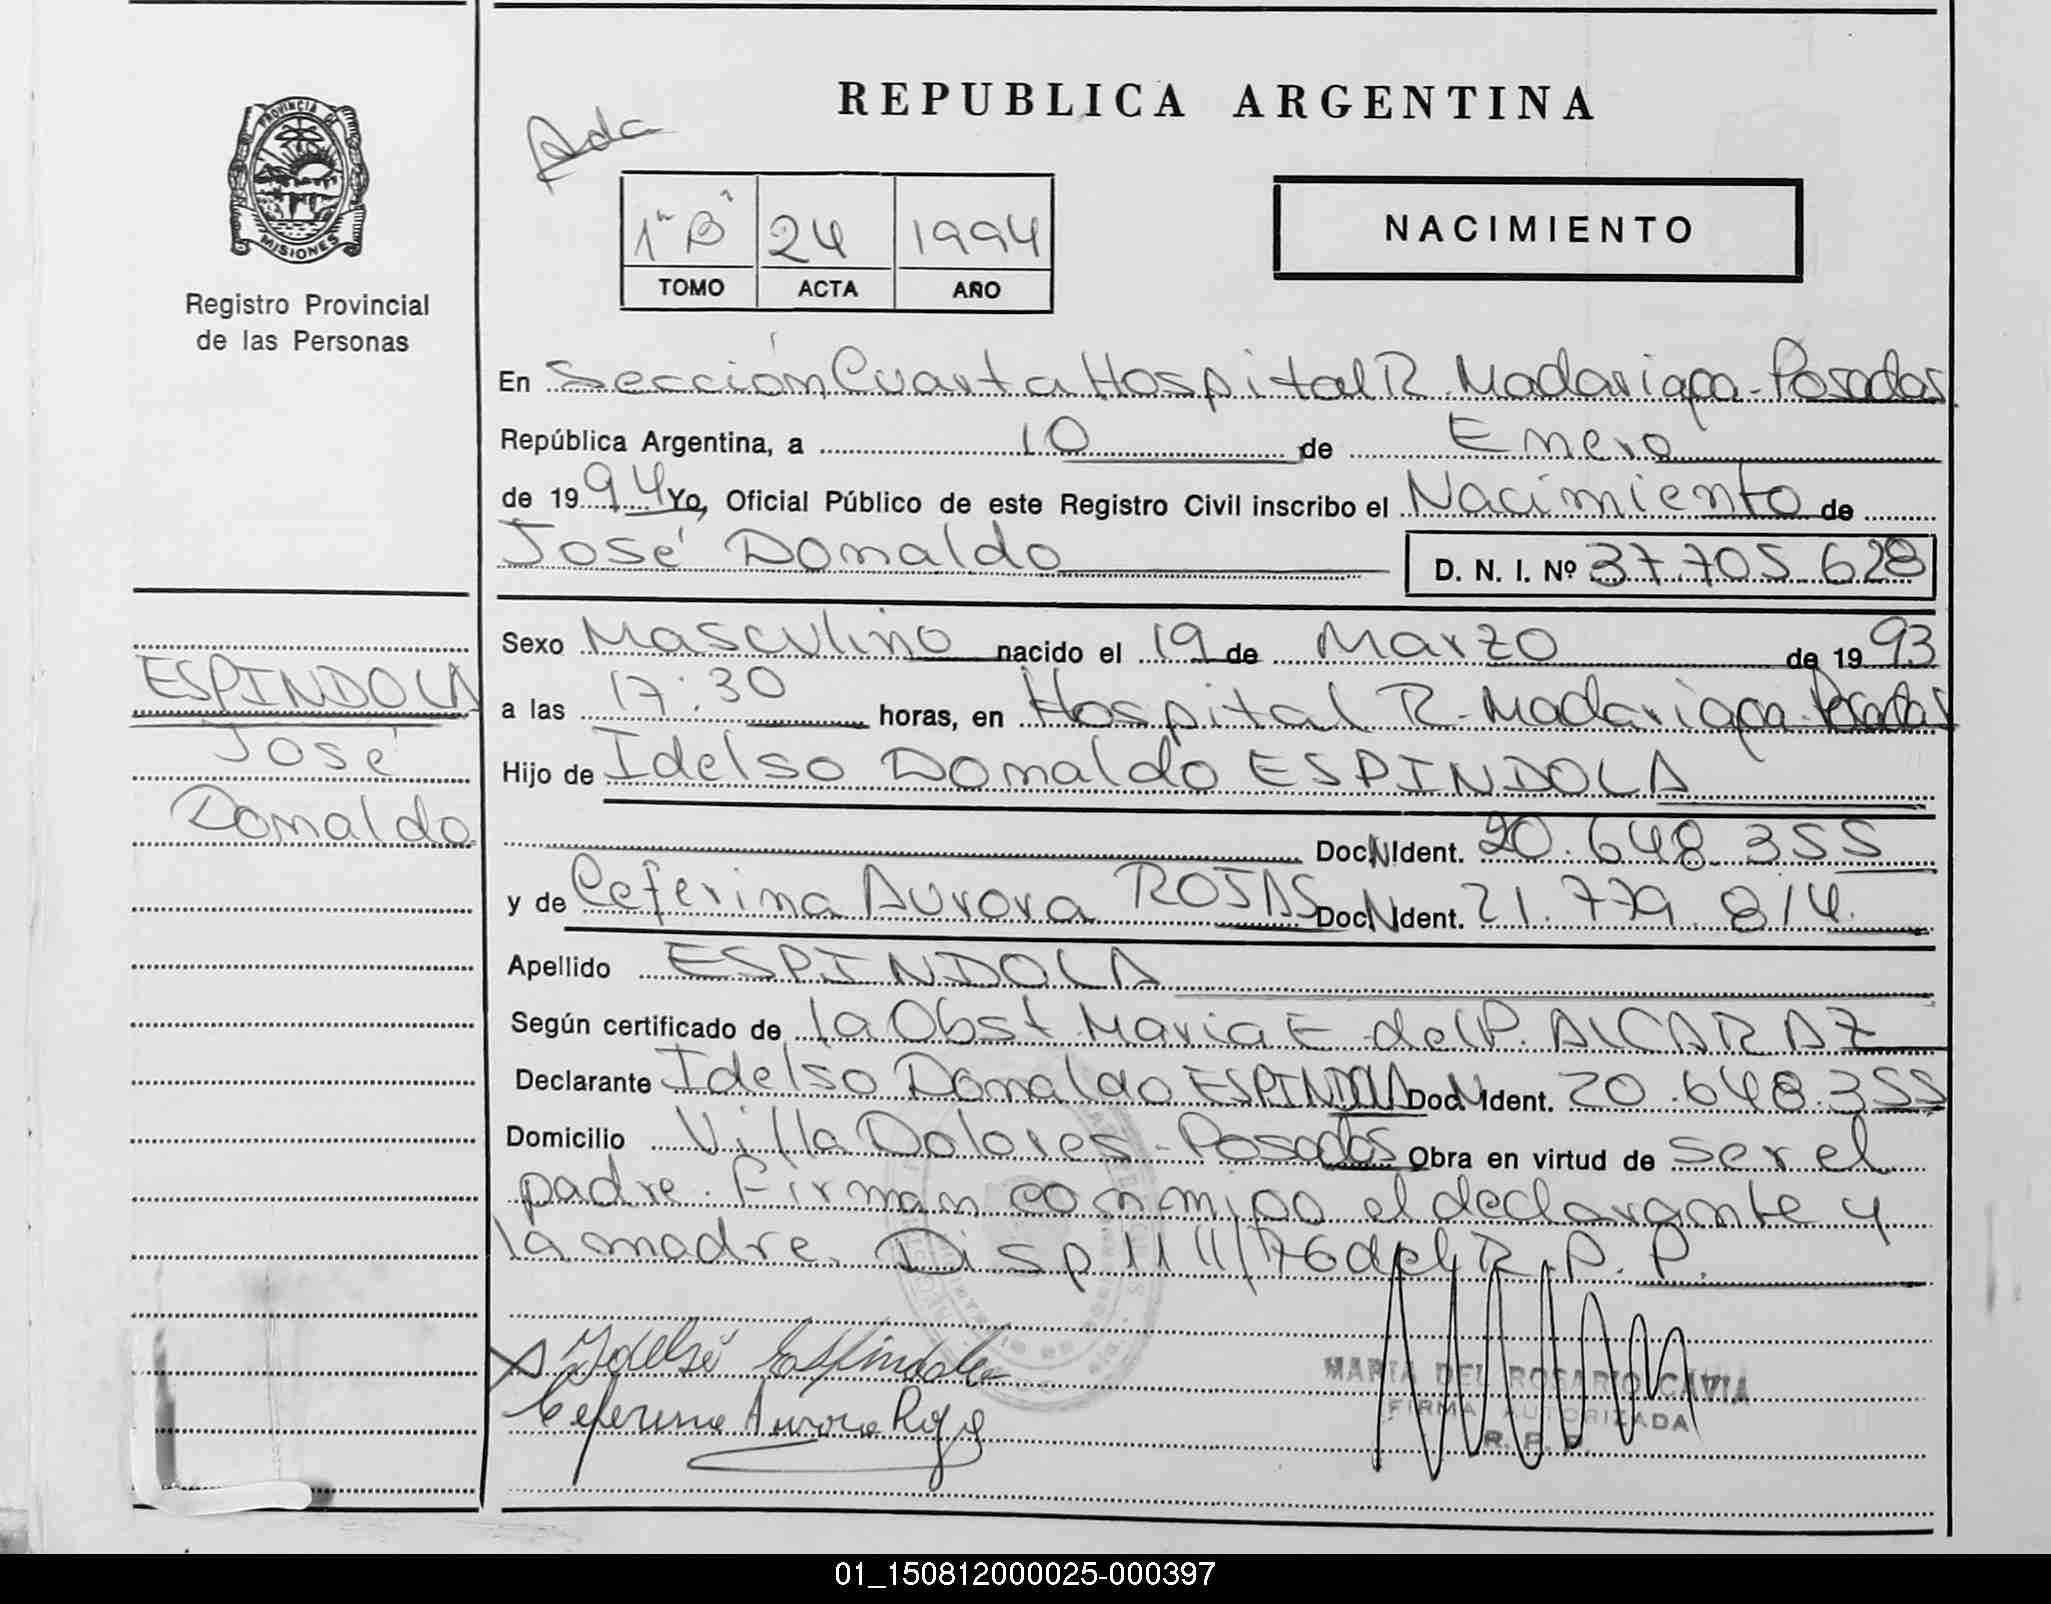 PROVINCIA DE
MISIONES
Registro Provincial
de las Personas
ESPINDOLA
José
Donaldo
REPUBLICA ARGENTINA
1º "B" 24 1994
TOMO ACTA AÑO
NACIMIENTO
En Sección Cuarta Hospital R. Madariaga - Posadas
República Argentina, a 10 de Enero
de 1994 Yo, Oficial Público de este Registro Civil inscribo el Nacimiento de
José Donaldo D. N. I. Nº 37.705.628
Sexo Masculino nacido el 19 de Marzo de 1993
a las 17:30 horas, en Hospital R. Madariaga - Posadas
Hijo de Idelso Donaldo ESPINDOLA
Doc. N. Ident. 20.648.355
y de Ceferina Aurora ROJAS Doc. N. Ident. 21.779.814.
Apellido ESPINDOLA
Según certificado de la Obst. Maria E. del P. ALCARAZ
Declarante Idelso Donaldo ESPINDOLA Doc. N. Ident. 20.648.355
Domicilio Villa Dolores - Posadas Obra en virtud de ser el
padre. Firman conmigo el declarante y
la madre. Disp 1111/76 del R. P. P.
X Idelso Espindola
Ceferina Aurora Rojas
MARIA DEL ROSARIO CAVIA
FIRMA AUTORIZADA
R. P. P.
01_150812000025-000397